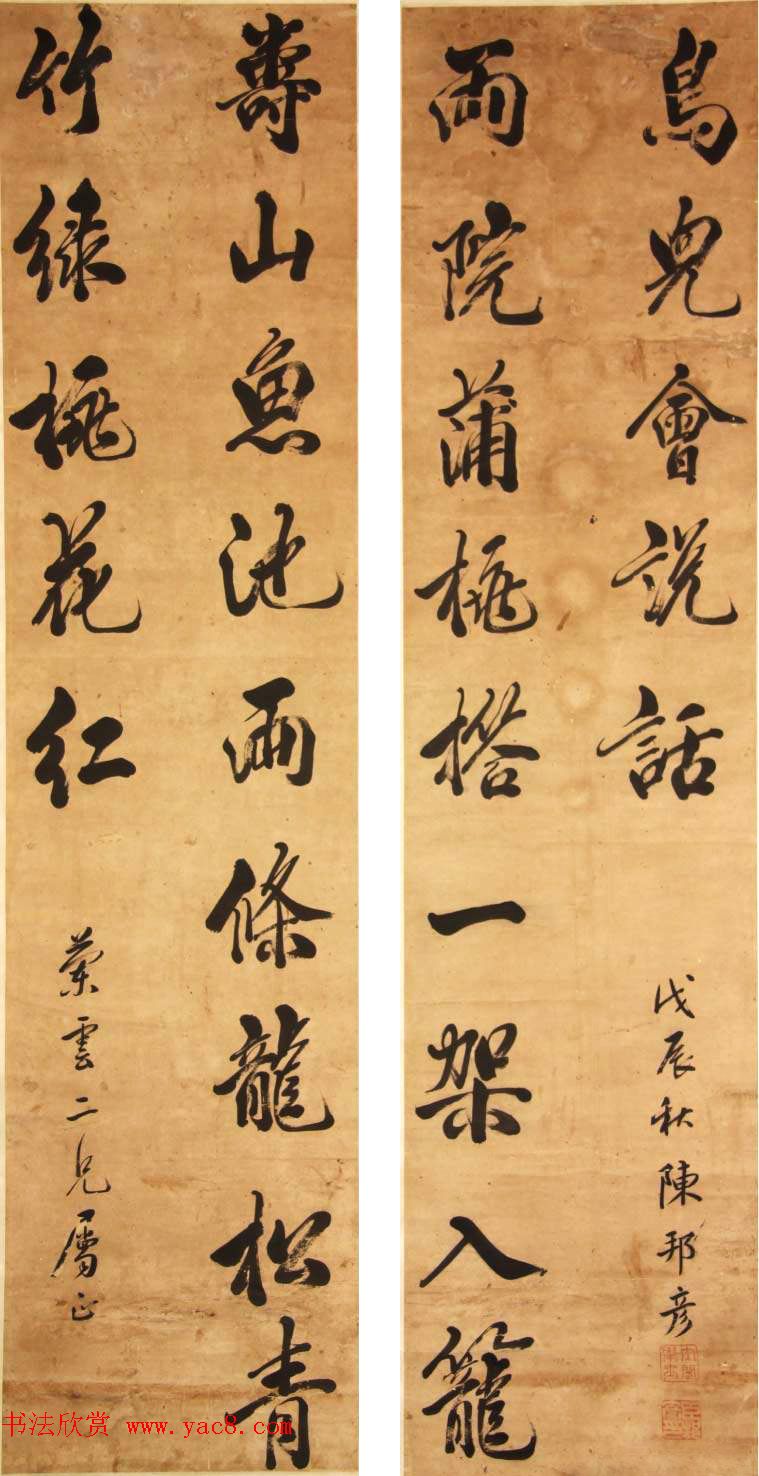 壽山魚池兩條龍松青
竹綠桃花紅
蘭雲二兄屬正
兩院蒲桃搭一架入籠
鳥兒會說話
戊辰秋陳邦彥
书法欣赏 www.yac8.com